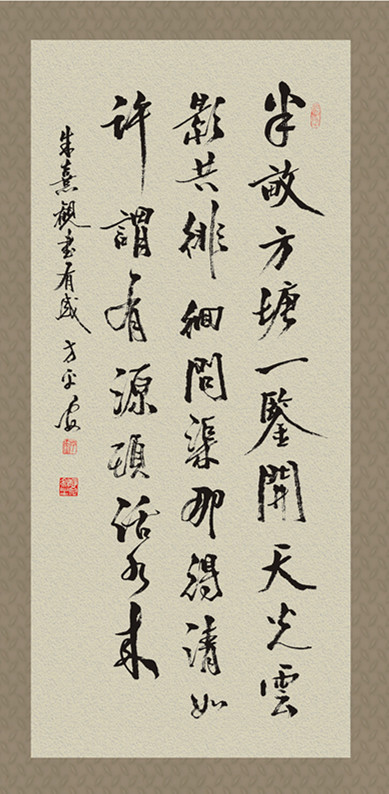 半畝方塘一鑒開天光雲
影共徘徊問渠那得清如
許謂有源頭活水来
朱熹觀書有感 方平